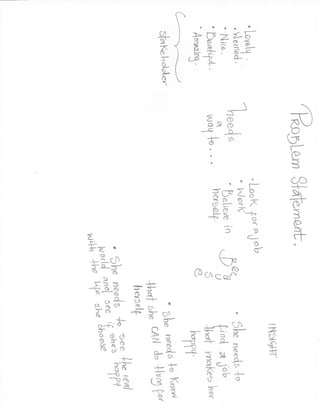 Problem Statement.
• Lovely.
• Worried.
• Nice.
• Beatyful.
• Amazing.
Stakeholder
needs
a
way to...
• Look for a job
• Work
• Believe in
herself
Because
INSIGHT
• She needs to
find a job
that makes her
happy.
• She needs to know
that she CAN do thing for
herself
• She needs to see the real
world and see if she's happy
with the life she choose